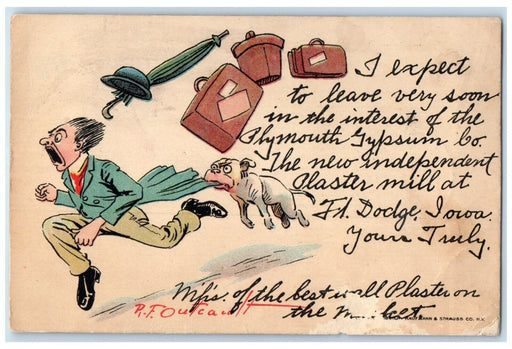 I expect
to leave very soon
in the interest of the
Plymouth Gypsum Co.
The new independent
Plaster mill at
Ft. Dodge, Iowa.
Yours Truly.
Mfs. of the best wall Plaster on
the
R.F. Outcault
& STRAUSS CO. N.Y.